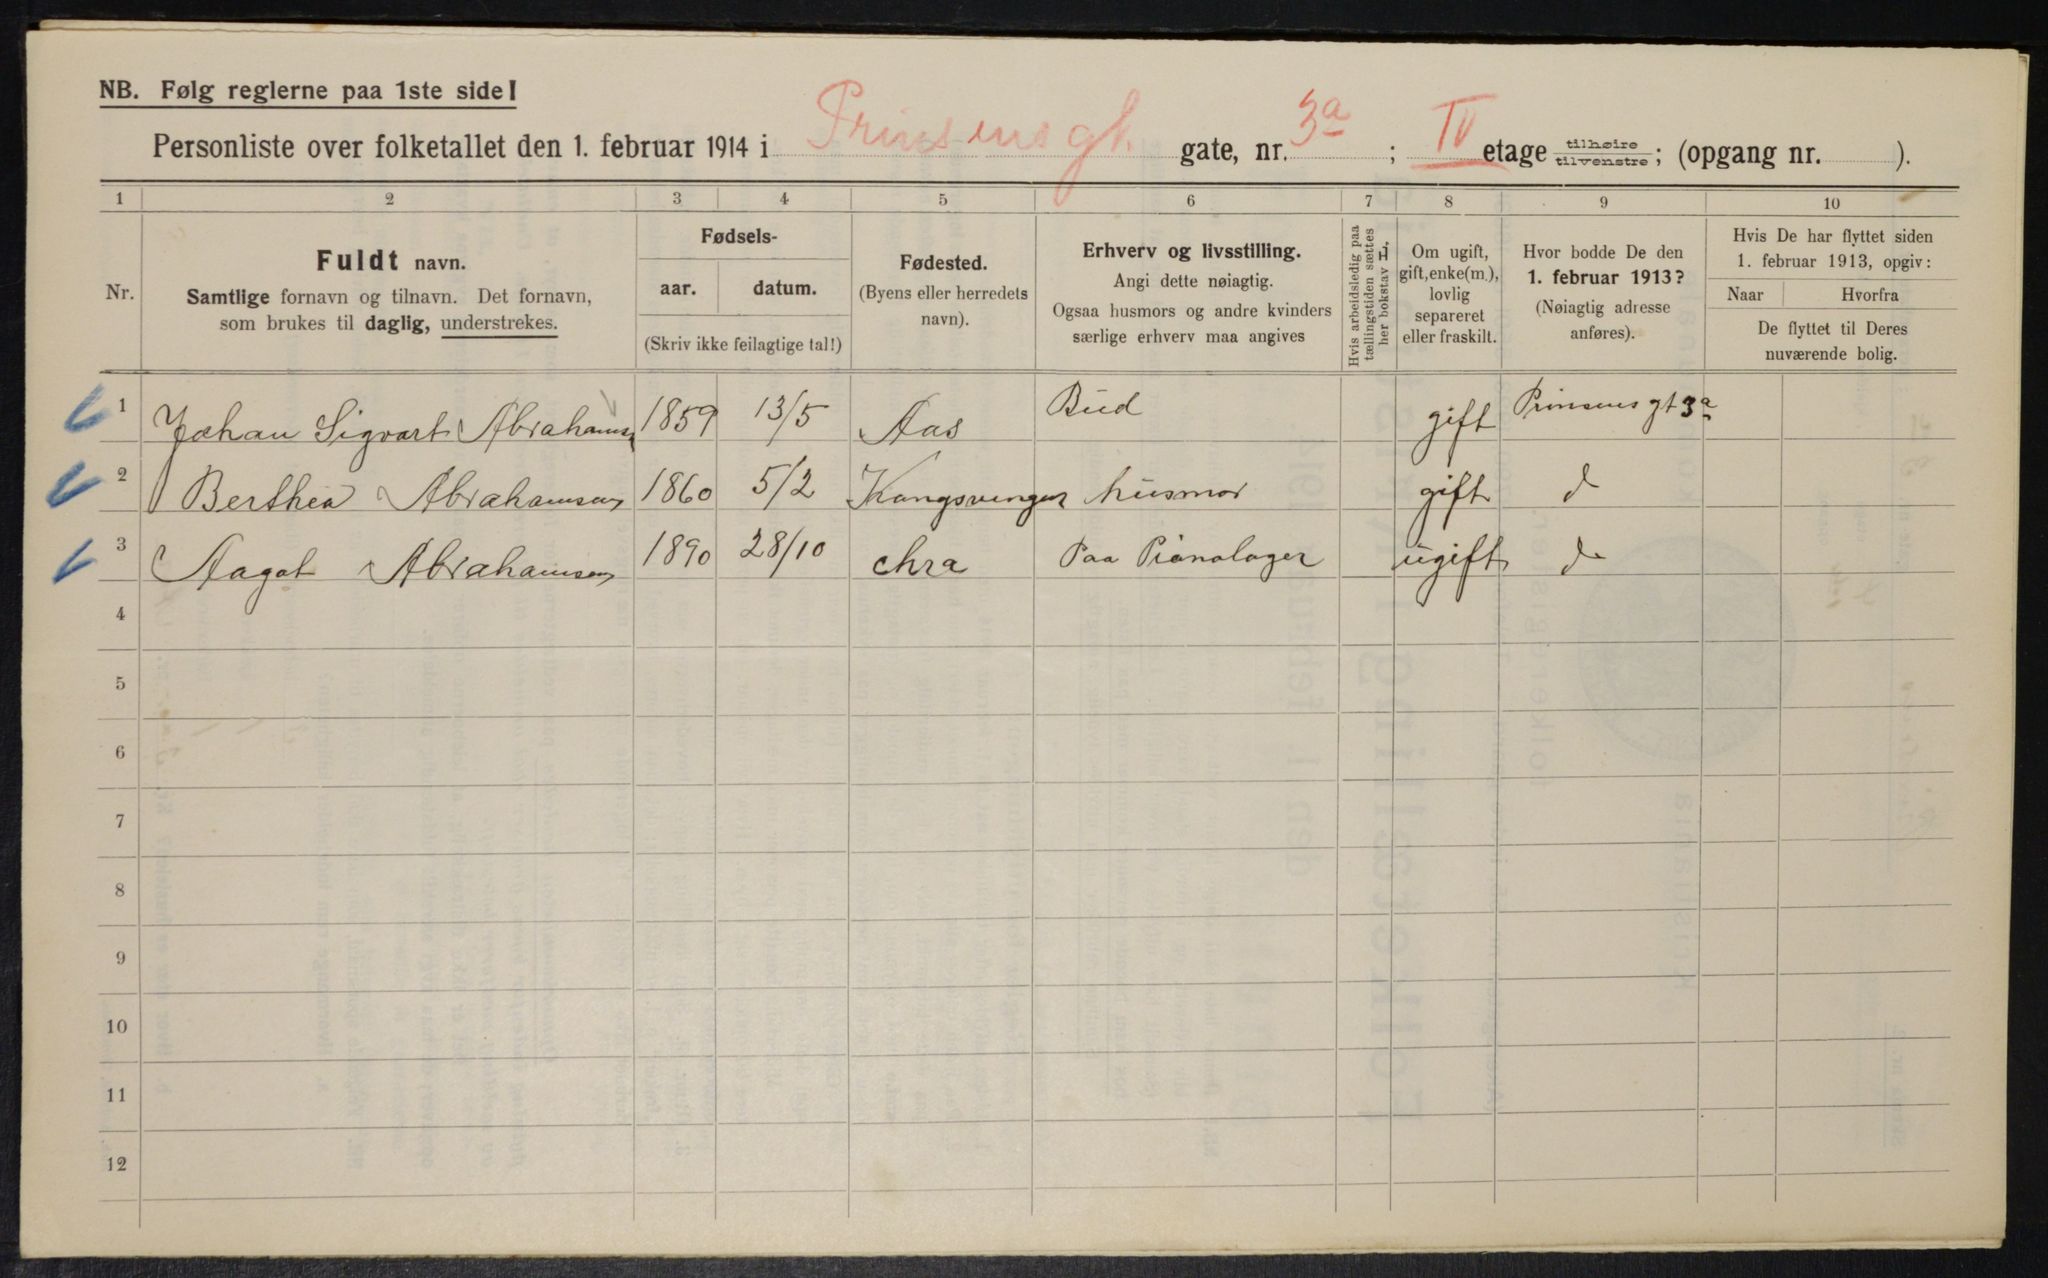 NB. Følg reglerne paa 1ste side!
Personliste over folketallet den 1. februar 1914 i Prinsens gt. gate, nr. 3a ; IV etage tilhøire tilvenstre; (opgang nr. ).
1 2 3 4 5 6 7 8 9 10
Nr.
Fuldt navn.
Samtlige fornavn og tilnavn. Det fornavn,
som brukes til daglig, understrekes.
Fødsels-
aar. datum.
(Skriv ikke feilagtige tal!)
Fødested.
(Byens eller herredets
navn).
Erhverv og livsstilling.
Angi dette nøiagtig.
Ogsaa husmors og andre kvinders
særlige erhverv maa angives
Hvis arbeidsledig paa
tællingstiden sættes
her bokstav L.
Om ugift,
gift, enke(m.),
lovlig
separeret
eller fraskilt.
Hvor bodde De den
1. februar 1913?
(Nøiagtig adresse
anføres).
Hvis De har flyttet siden
1. februar 1913, opgiv:
Naar Hvorfra
De flyttet til Deres
nuværende bolig.
1 Johan Sigvart Abrahamsen 1859 13/5 Aas Bud gift Prinsens gt 3a
2 Berthea Abrahamsen 1860 5/2 Kongsvinger husmor gift d
3 Aagot Abrahamsen 1890 28/10 Chra Paa Pianolager ugift d
4
5
6
7
8
9
10
11
12